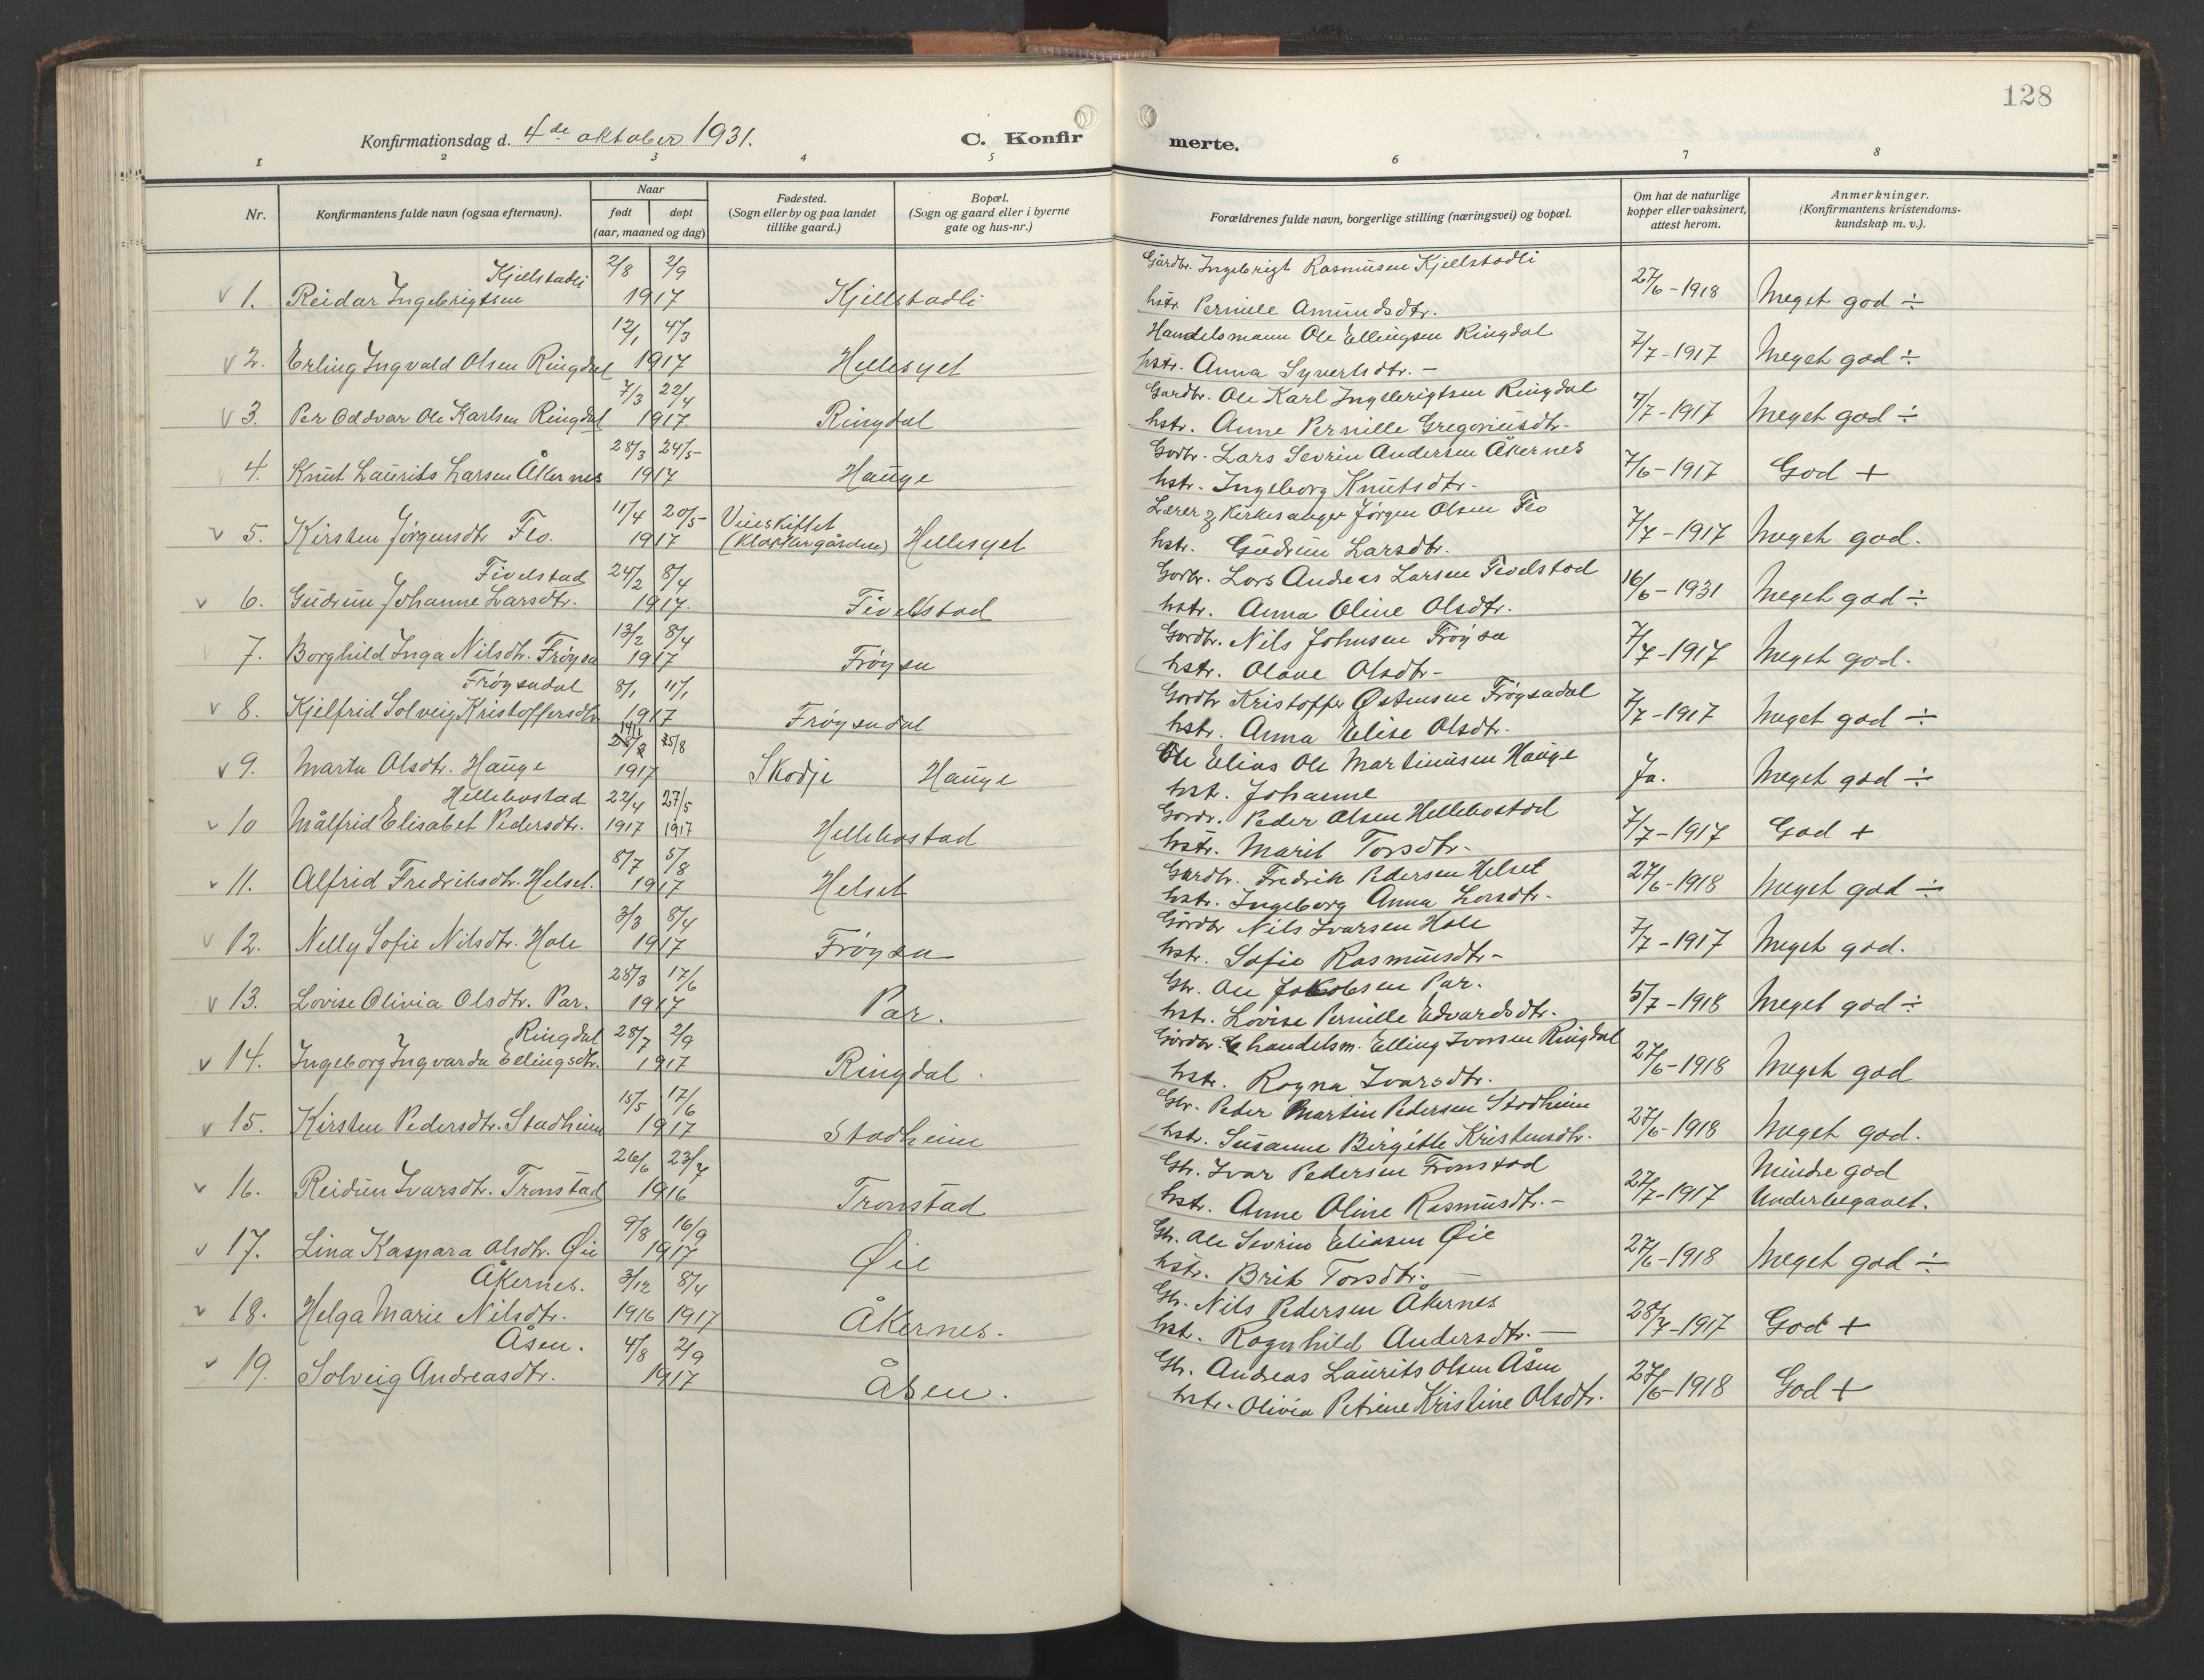 128
Konfirmationsdag d. 4de oktober 1931.
C. Konfirmerte.
1 2 3 4 5 6 7 8
Nr.
Konfirmantens fulde navn (ogsaa efternavn).
Naar
født døpt
(aar, maaned og dag)
Fødested.
(Sogn eller by og paa landet
tillike gaard.)
Bopæl.
(Sogn og gaard eller i byerne
gate og hus-nr.)
Forældrenes fulde navn, borgerlige stilling (næringsvei) og bopæl.
Om hat de naturlige
kopper eller vaksinert,
attest herom.
Anmerkninger.
(Konfirmantens kristendoms-
kundskap m. v.).
Kjellstadli 2/8 2/9 Gårdbr. Ingebrigt Rasmusen Kjellstadli
1. Reidar Ingebrigtsen 1917 Kjellstadli hstr. Pernille Amundsdtr. 27/6-1918 Meget god ÷
12/1 4/3 Handelsmann Ole Ellingsen Ringdal
2. Erling Ingvald Olsen Ringdal 1917 Hellesyet hstr. Anna Syvertsdtr. - 7/7-1917 Meget god ÷
7/3 22/4 Gardbr. Ole Karl Ingebrigtsen Ringdal
3. Per Oddvar Ole Karlsen Ringdal 1917 Ringdal hstr. Anne Pernille Gregoriusdtr. 7/7-1917 Meget god ÷
28/3 24/5 Gardbr. Lars Sevrin Andersen Åkernes
4. Knut Laurits Larsen Åkernes 1917 Hauge hstr. Ingeborg Knutsdtr. 7/6-1917 God +
11/4 20/5 Lærer & Kirkesanger Jørgen Olsen Flo
5. Kirsten Jørgensdtr Flo. 1917 (Klokkergården) Hellesyet hstr. Gudrun Larsdtr. 7/7-1917 Meget god.
Fivelstad 24/2 8/4 Gardbr. Lars Andreas Larsen Fivelstad
6. Gudrun Johanne Larsdtr. 1917. Fivelstad hstr. Anna Oline Olsdtr. 16/6-1931 Meget god ÷
13/2 8/4 Gardbr. Nils Johnsen Frøysa
7. Borghild Inga Nilsdtr. Frøysa 1917 Frøysa hstr. Olave Olsdtr- 7/7-1917 Meget god.
Frøysadal 8/1 11/1 Gardbr Kristoffer Østensen Frøysadal
8. Kjelfrid Solveig Kristoffersdtr 1917 Frøysadal hstr. Anna Elise Olsdtr. 7/7-1917 Meget god ÷
5/8 Elias Ole Martinusen Hauge
9. Marta Olsdtr. Hauge 1917 Skodje Hauge hstr. Johanne Ja. Meget god ÷
Hellebostad 22/4 27/5 Gardbr. Peder Olsen Hellebostad
10 Målfrid Elisabet Pedersdtr. 1917 1917 Hellebostad hstr. Marit Torsdtr. 7/7-1917 God +
8/7 5/8 Gardbr. Fredrik Pedersen Helset
11. Alfrid Fredriksdtr. Helset. 1917 Helset hstr. Ingeborg Anna Larsdtr. 27/6-1918 Meget god ÷
3/3 8/4 Gårdbr Nils Ivarsen Hole
12. Nelly Sofie Nilsdtr. Hole 1917 Frøysa hstr. Sofie Rasmusdtr- 7/7-1917 Meget god.
28/3 17/6 Gbr. Ole Jakobsen Par.
13. Lovise Olivia Olsdtr. Par. 1917 Par. hstr. Lovise Pernille Edvardsdtr. 5/7-1918 Meget god ÷
Ringdal 28/7 2/9 Gårdbr. & handelsm. Elling Ivarsen Ringdal
14. Ingeborg Ingvarda Ellingsdtr. 1917 Ringdal hstr. Ragna Ivarsdtr. 27/6-1918 Meget god
15/5 17/6 Gbr. Peder Martin Pedersen Stadheim
15. Kirsten Pedersdtr. Stadheim 1917 Stadheim hstr. Susanne Birgitte Kristensdtr. 27/6-1918 Meget god.
26/6 23/7 Gbr. Ivar Pedersen Tronstad Mindre god
16. Reidun Ivarsdtr. Tronstad 1916 Tronstad hstr. Anne Oline Rasmusdtr. - 27/7-1917 Underbegavet.
9/8 16/9 Gbr. Ole Sevrin Eliasen Øie
17. Lina Kaspara Olsdtr. Øie 1917 Øie hstr. Brit Torsdtr. - 27/6-1918 Meget god ÷
Åkernes. 3/12 8/4 Gbr. Nils Pedersen Åkernes
18. Helga Marie Nilsdtr. 1916 1917 Åkernes. hstr. Ragnhild Andersdtr. - 28/7-1917 God +
Åsen. 4/8 2/9 Gbr. Andreas Laurits Olsen Åsen
19. Solveig Andreasdtr. 1917 Åsen. hstr. Olivia Petrine Kristine Olsdtr. 27/6-1918 God +